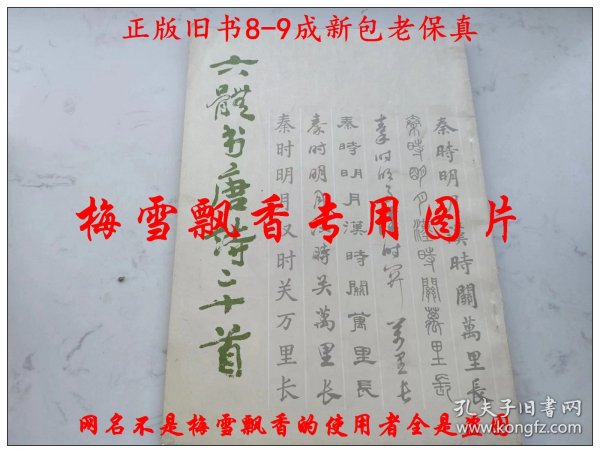 正版旧书8-9成新包老保真
六體书唐诗二十首
秦時明 漢時關萬里長
秦時明月漢時關萬里長
秦时明月 时关万里长
秦時明月漢時關萬里長
秦时明月 時关萬里长
秦时明月汉时关万里长
梅雪飘香专用图片
网名不是梅雪飘香的使用者全是盗图
孔夫子旧书网
www.kongfz.com